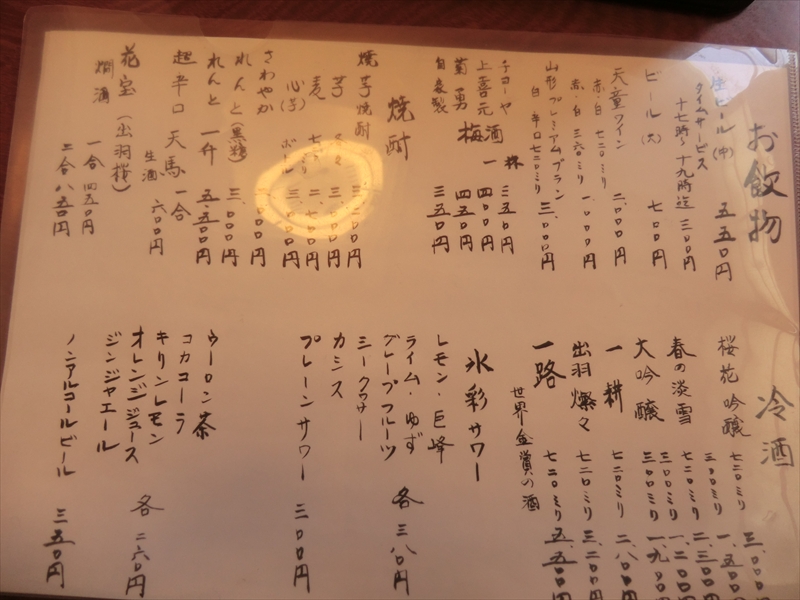 お飲物
生ビール(中) 五五〇円
タイムサービス
十七時〜十九時迄 三〇〇円
ビール(大) 七〇〇円
天童ワイン
赤・白 七二〇ミリ 二、〇〇〇円
赤・白 三六〇ミリ 一、〇〇〇円
山形プレミアムブラン
白 辛口 七二〇ミリ 三、〇〇〇円
梅酒
チョーヤ 三五〇円
上喜元 一 四〇〇円
菊勇 四五〇円
自家製 三五〇円
焼酎
焼芋焼酎 三、二〇〇円
芋
麦
二、七〇〇円
ボール 三、〇〇〇円
さわやか
れんと(黒糖) 三、〇〇〇円
れんと 一升 五、五〇〇円
超辛口 天馬 一合
生酒 六〇〇円
花宝(出羽桜)
燗酒 一合 四五〇円
二合 八五〇円
冷酒
桜花吟醸 七二〇ミリ 三、〇〇〇
三〇〇ミリ 一、五〇〇
春の淡雪 七二〇ミリ 二、三〇〇
三〇〇ミリ 一、二〇〇
大吟醸 三〇〇ミリ 一、九〇〇円
一耕 七二〇ミリ 二、八〇〇円
出羽燦々 七二〇ミリ 三、二〇〇円
一路 七二〇ミリ 五、五〇〇円
世界金賞の酒
氷彩サワー
レモン・巨峰
ライム・ゆず
グレープフルーツ 各 三八〇円
シークワサー
カシス
プレーンサワー 三〇〇円
ウーロン茶
コカコーラ
キリンレモン
オレンジジュース 各 二六〇円
ジンジャエール
ノンアルコールビール 三五〇円